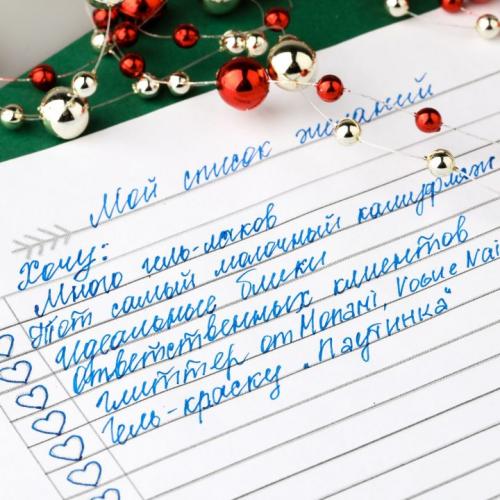 Мой список желаний
Хочу:
Много гель-лаков
Тот самый молочный камуфляж
Идеальные блики
ответственных клиентов
глиттер от Monami, Vogue Nai
Гель-краску „Паутинка“